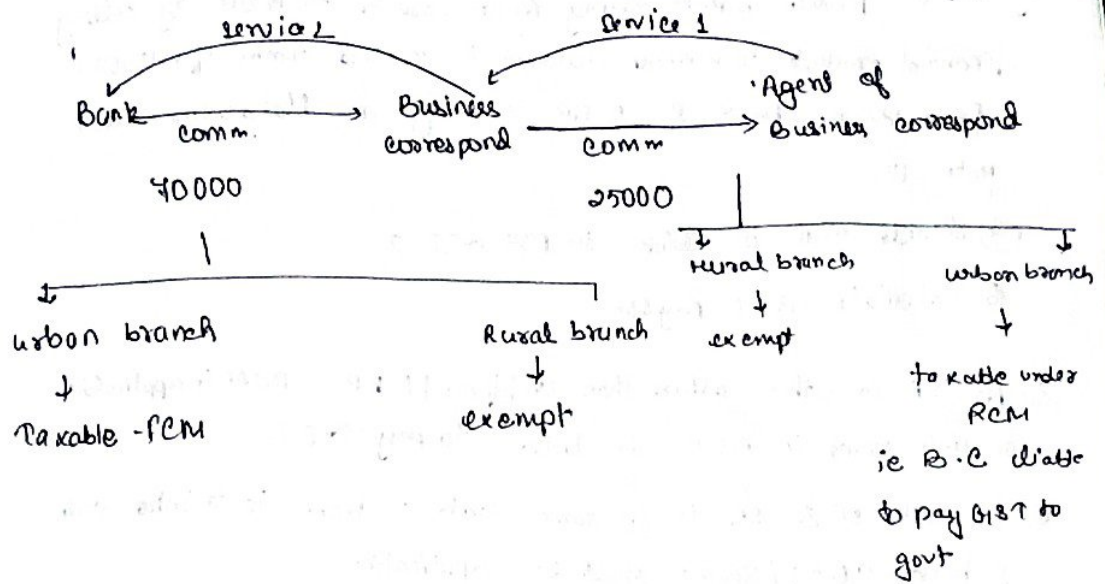 service 2
service 1
Bank
comm.
Business
correspond
comm
Agent of
Business correspond
70000
25000
urban branch
Taxable - FCM
Rural branch
exempt
Rural branch
exempt
urban branch
taxable under
RCM
ie B.C liable
to pay GST to
govt